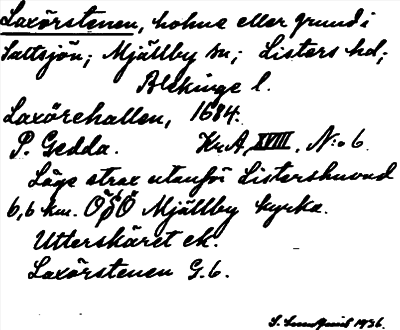 Laxörstenen, holme eller grund i
Saltsjön; Mjällby sn; Listers hd;
Blekinge l.
Laxörehallen, 1684.
P. Gedda. Kr.A. XVIII, N:o 6.
Läge strax utanför Listershuvud
6,6 km. ÖSÖ Mjällby kyrka.
Utterskäret ek.
Laxörstenen G.b.
S. 1936.